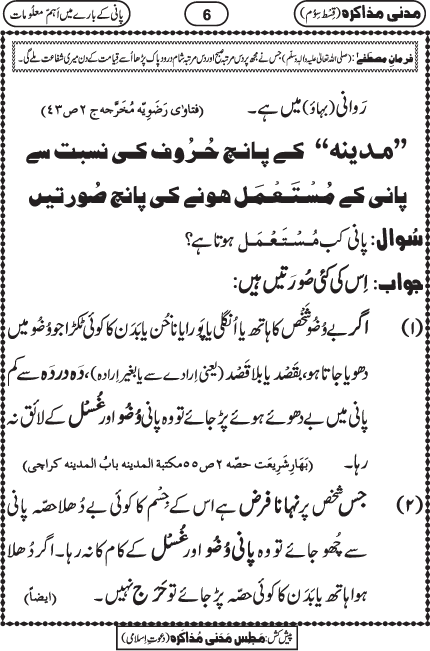 مدنی مذاکرہ (قسط سِوُم) 6 پانی کے بارے میں اَہَم معلومات
فرمانِ مصطفےٰ: (صلی اللہ تعالیٰ علیہ والہ وسلّم) جس نے مجھ پر دس مرتبہ صبح اور دس مرتبہ شام درود پاک پڑھا اُسے قیامت کے دن میری شفاعت ملے گی۔
رَوانی (بہاؤ) میں ہے۔ (فتاوٰی رَضَوِیّہ مُخَرَّجہ ج ۲ ص ۴۳)
”مدینہ“ کے پانچ حُرُوف کی نسبت سے
پانی کے مُسْتَعْمَل ہونے کی پانچ صُورتیں
سُوال: پانی کب مُسْتَعْمَل ہوتا ہے؟
جواب: اِس کی کئی صُورَتیں ہیں:
(۱) اگر بے وُضو شَخْص کا ہاتھ یا اُنگلی یا پَورا یا ناخُن یا بدن کا کوئی ٹکڑا جو وُضو میں
دھویا جاتا ہو، بقَصْد یا بِلا قَصْد (یعنی اِرادے سے یا بغیر اِرادہ)، دَہ در دَہ سے کم
پانی میں بے دھوئے ہوئے پڑ جائے تو وہ پانی وُضُو اور غُسْل کے لائق نہ
رہا۔ (بہارِ شریعت حصّہ ۲ ص ۵۵ مکتبۃ المدینہ بابُ المدینہ کراچی)
(۲) جس شَخْص پر نہانا فرض ہے اس کے جِسْم کا کوئی بے دُھلا حصّہ پانی
سے چُھو جائے تو وہ پانی وُضُو اور غُسْل کے کام کا نہ رہا۔ اگر دُھلا
ہوا ہاتھ یا بدن کا کوئی حصّہ پڑ جائے تو حَرَج نہیں۔ (ایضاً)
پیش کش: مجلس مَدَنی مُذاکرہ (دعوتِ اسلامی)